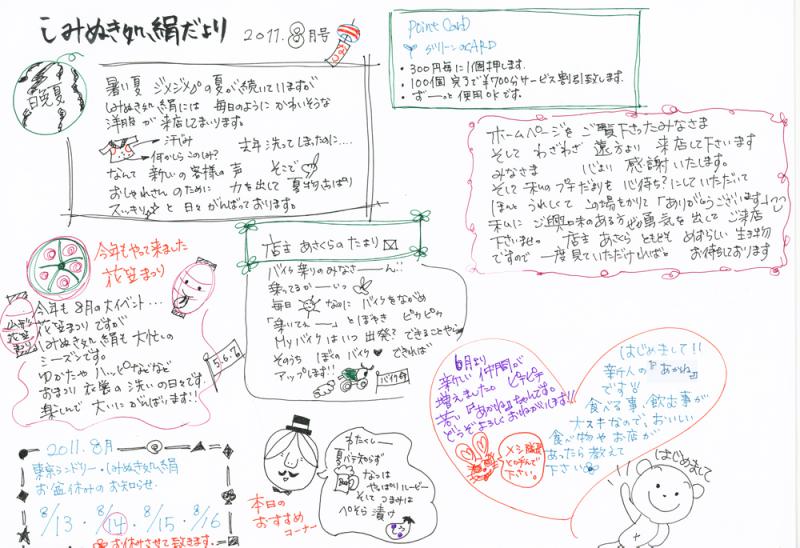 しみぬき処 絹だより 2011.8月号
晩夏
暑い夏 ジメジメの夏が続いていますが
しみぬき処 絹には 毎日のように かわいそうな
洋服 が 来店してまいります。
汗じみ
何かしら このしみ?
去年 洗ってしまったのに…
なんて 新しいお客様の声 そこで
おしゃれさんの ために 力を出して 夏物さっぱり
スッキリ と 日々がんばっております。
Point CarD
グリーンのCARD
・300円毎に1個押します.
・100個 完了で¥700分サービス割引致します.
・ず――っと 使用OKです.
ホームページを ご覧下さったみなさま
そして わざわざ 遠方より 来店して下さいます
みなさま 心より 感謝いたします。
そして 私の プチだよりを 心待ち?にしていただいて
ほんとうれしくて この場をかりて「ありがとうございます」
私に ご興味のある方ぜひ勇気を出して ご来店
下さいませ。 店主 あさくら ともども めずらしい 生き物
ですので 一度見ていただければ。 お待ちしております
今年もやって来ました
花笠まつり
今年も 8月の大イベント…
花笠まつり ですが
しみぬき処 絹も 大忙しの
シーズンです。
ゆかたや ハッピなどなど
おまつり 衣装の 洗いの日々です.
楽しんで 大いに がんばります!!
5.6.7
店主 あさくらのたまり
バイク乗りのみなさ――ん!!
乗ってるか――いっ
毎日 なのに バイクをながめ
「乗いてぇ――」と ほねき ピカピカ
Myバイクは いつ 出発? できることやら
そのうち ぼくのバイク できれば
アップします!!
バイク命
6月より
新しい 仲間が
増えました。 ピチピチ
若い『あかね』ちゃんです。
どうぞよろしく おねがいします!!
メシ隊長
と呼んで
下さい。
はじめまして!!
新人の『あかね』
です
食べる事、飲む事が
大スキなので、おいしい
食べ物や お店が
あったら 教えて
下さい
はじめまして
2011.8月
東京ランドリー・しみぬき処 絹
お盆休みの お知らせ.
8/13・8/14・8/15・8/16
お休みさせて致きます.
本日の
おすすめ
コーナー
わたくし――
夏バテ知らず
なつは
やっぱり ルービー
そして つまみは
ぺそら 漬け